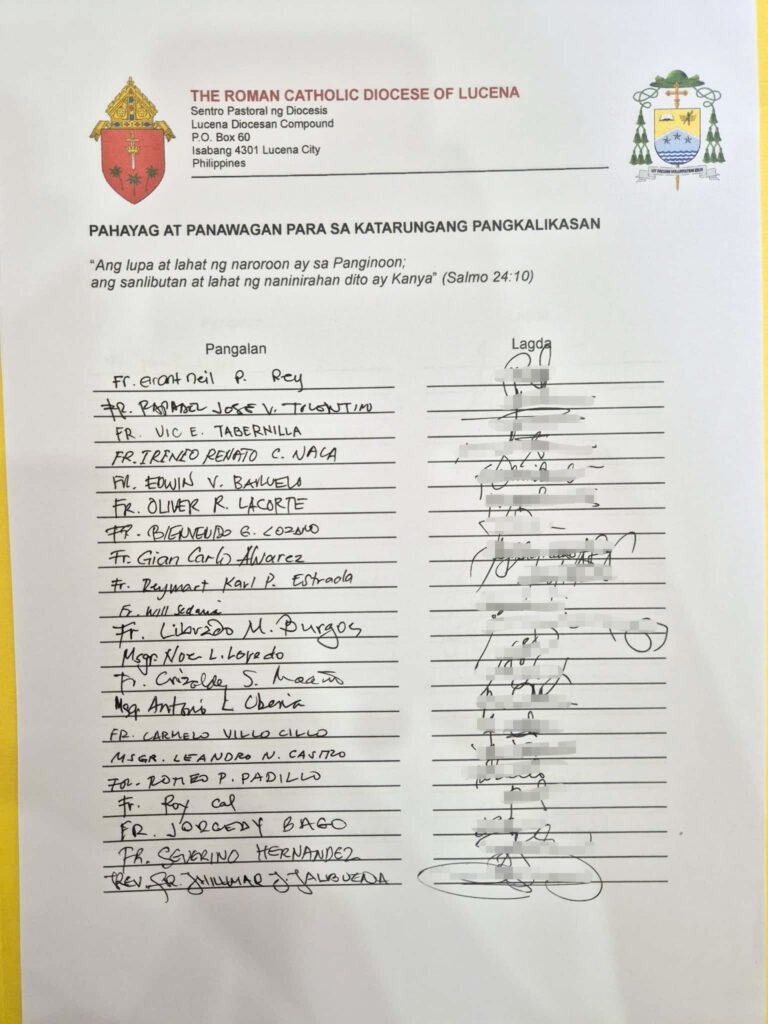 THE ROMAN CATHOLIC DIOCESE OF LUCENA
Sentro Pastoral ng Diocesis
Lucena Diocesan Compound
P.O. Box 60
Isabang 4301 Lucena City
Philippines
PAHAYAG AT PANAWAGAN PARA SA KATARUNGANG PANGKALIKASAN
“Ang lupa at lahat ng naroroon ay sa Panginoon;
ang sanlibutan at lahat ng naninirahan dito ay Kanya” (Salmo 24:10)
Pangalan Lagda
Fr. Grant Neil P. Rey
FR. RAPHAEL JOSE V. TOLENTINO
FR. VIC E. TABERNILLA
FR. IRENEO RENATO C. NACA
FR. EDWIN V. BAÑUELO
FR. OLIVER R. LACORTE
FR. BIENVENIDO G. LOZANO
Fr. Gian Carlo Alvarez
Fr. Reymart Karl P. Estraola
Fr. Will
Fr. Librado M. Burgos
Msgr. Noe L. Loredo
Fr. Crizaldy S. Maaño
Msgr Antonio L Obeña
FR. CARMELO VILLO CILLO
MSGR. LEANDRO N. CASTRO
ROMEO P. PADILLO
Fr. Roy Cal
FR. JORGEDY BAGO
FR. SEVERINO HERNANDEZ
REV. FR. JHILLMAR J. JALBUENA